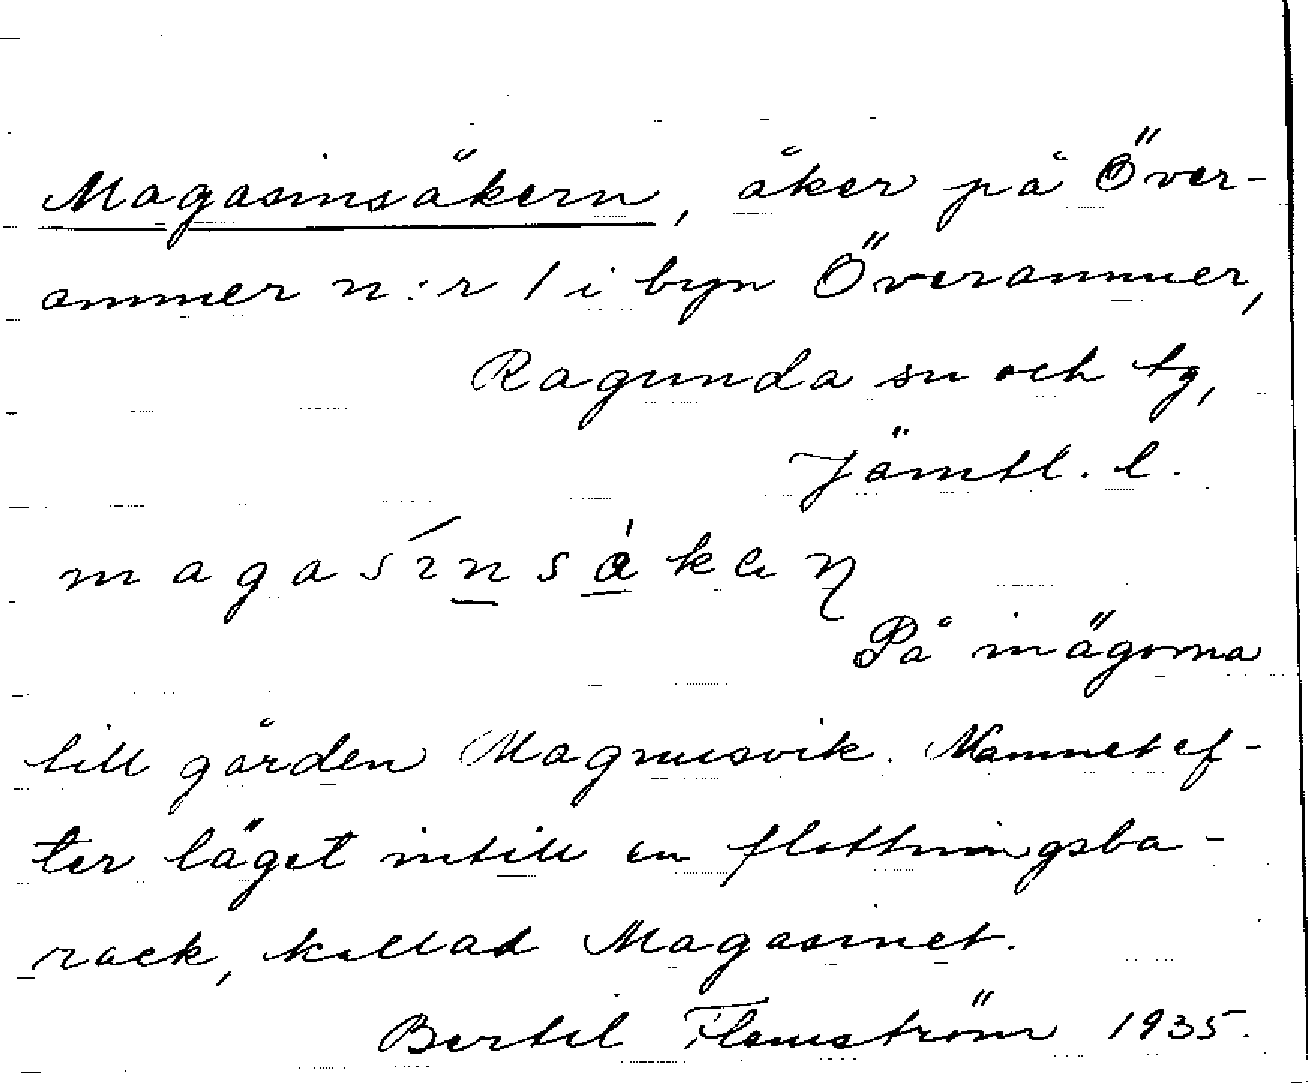 Magasinsåkern, åker på Över-
ammer n:r 1 i byn Överammer,
Ragunda sn och tg,
Jämtl. l.
magasinsåkaɳ
På inägorna
till gården Magnusvik. Namnet ef-
ter läget intill en flottningsba-
rack, kallad Magasinet.
Bertil Flemström 1935.